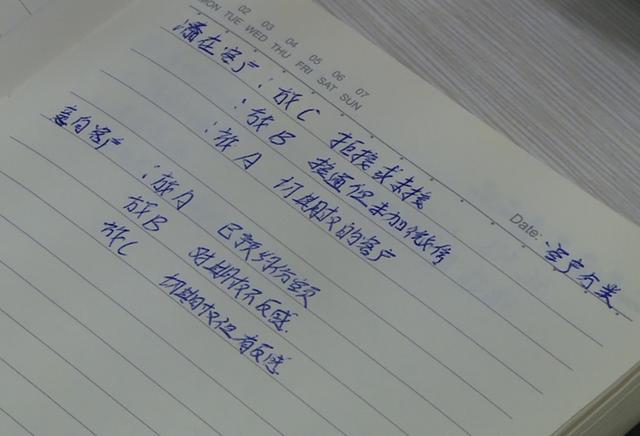 02 03 04 05 06 07
MON TUE WED THU FRI SAT SUN
Date: 客户分类
潜在客户：放C 拒接或未接
：放B 接通但未加微信
：放A 切期权的客户
意向客户：放A 已预约份额
放B 对期权不反感
放C 切期权但有反感